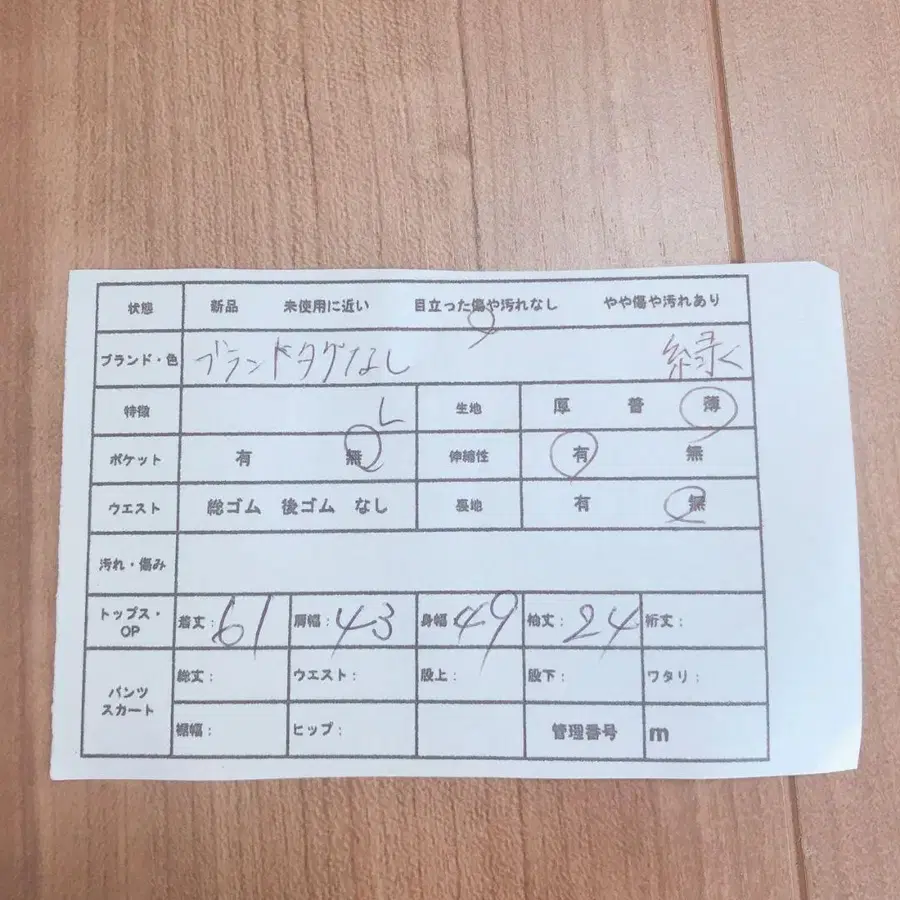 状態 新品 未使用に近い 目立った傷や汚れなし やや傷や汚れあり
ブランド・色 ブランドタグなし 緑
特徴 L 生地 厚 普 薄
ポケット 有 無 伸縮性 有 無
ウエスト 総ゴム 後ゴム なし 裏地 有 無
汚れ・傷み
トップス・OP 着丈: 61 肩幅: 43 身幅: 49 袖丈: 24 裄丈:
パンツ スカート 総丈: ウエスト: 股上: 股下: ワタリ:
裾幅: ヒップ: 管理番号 m